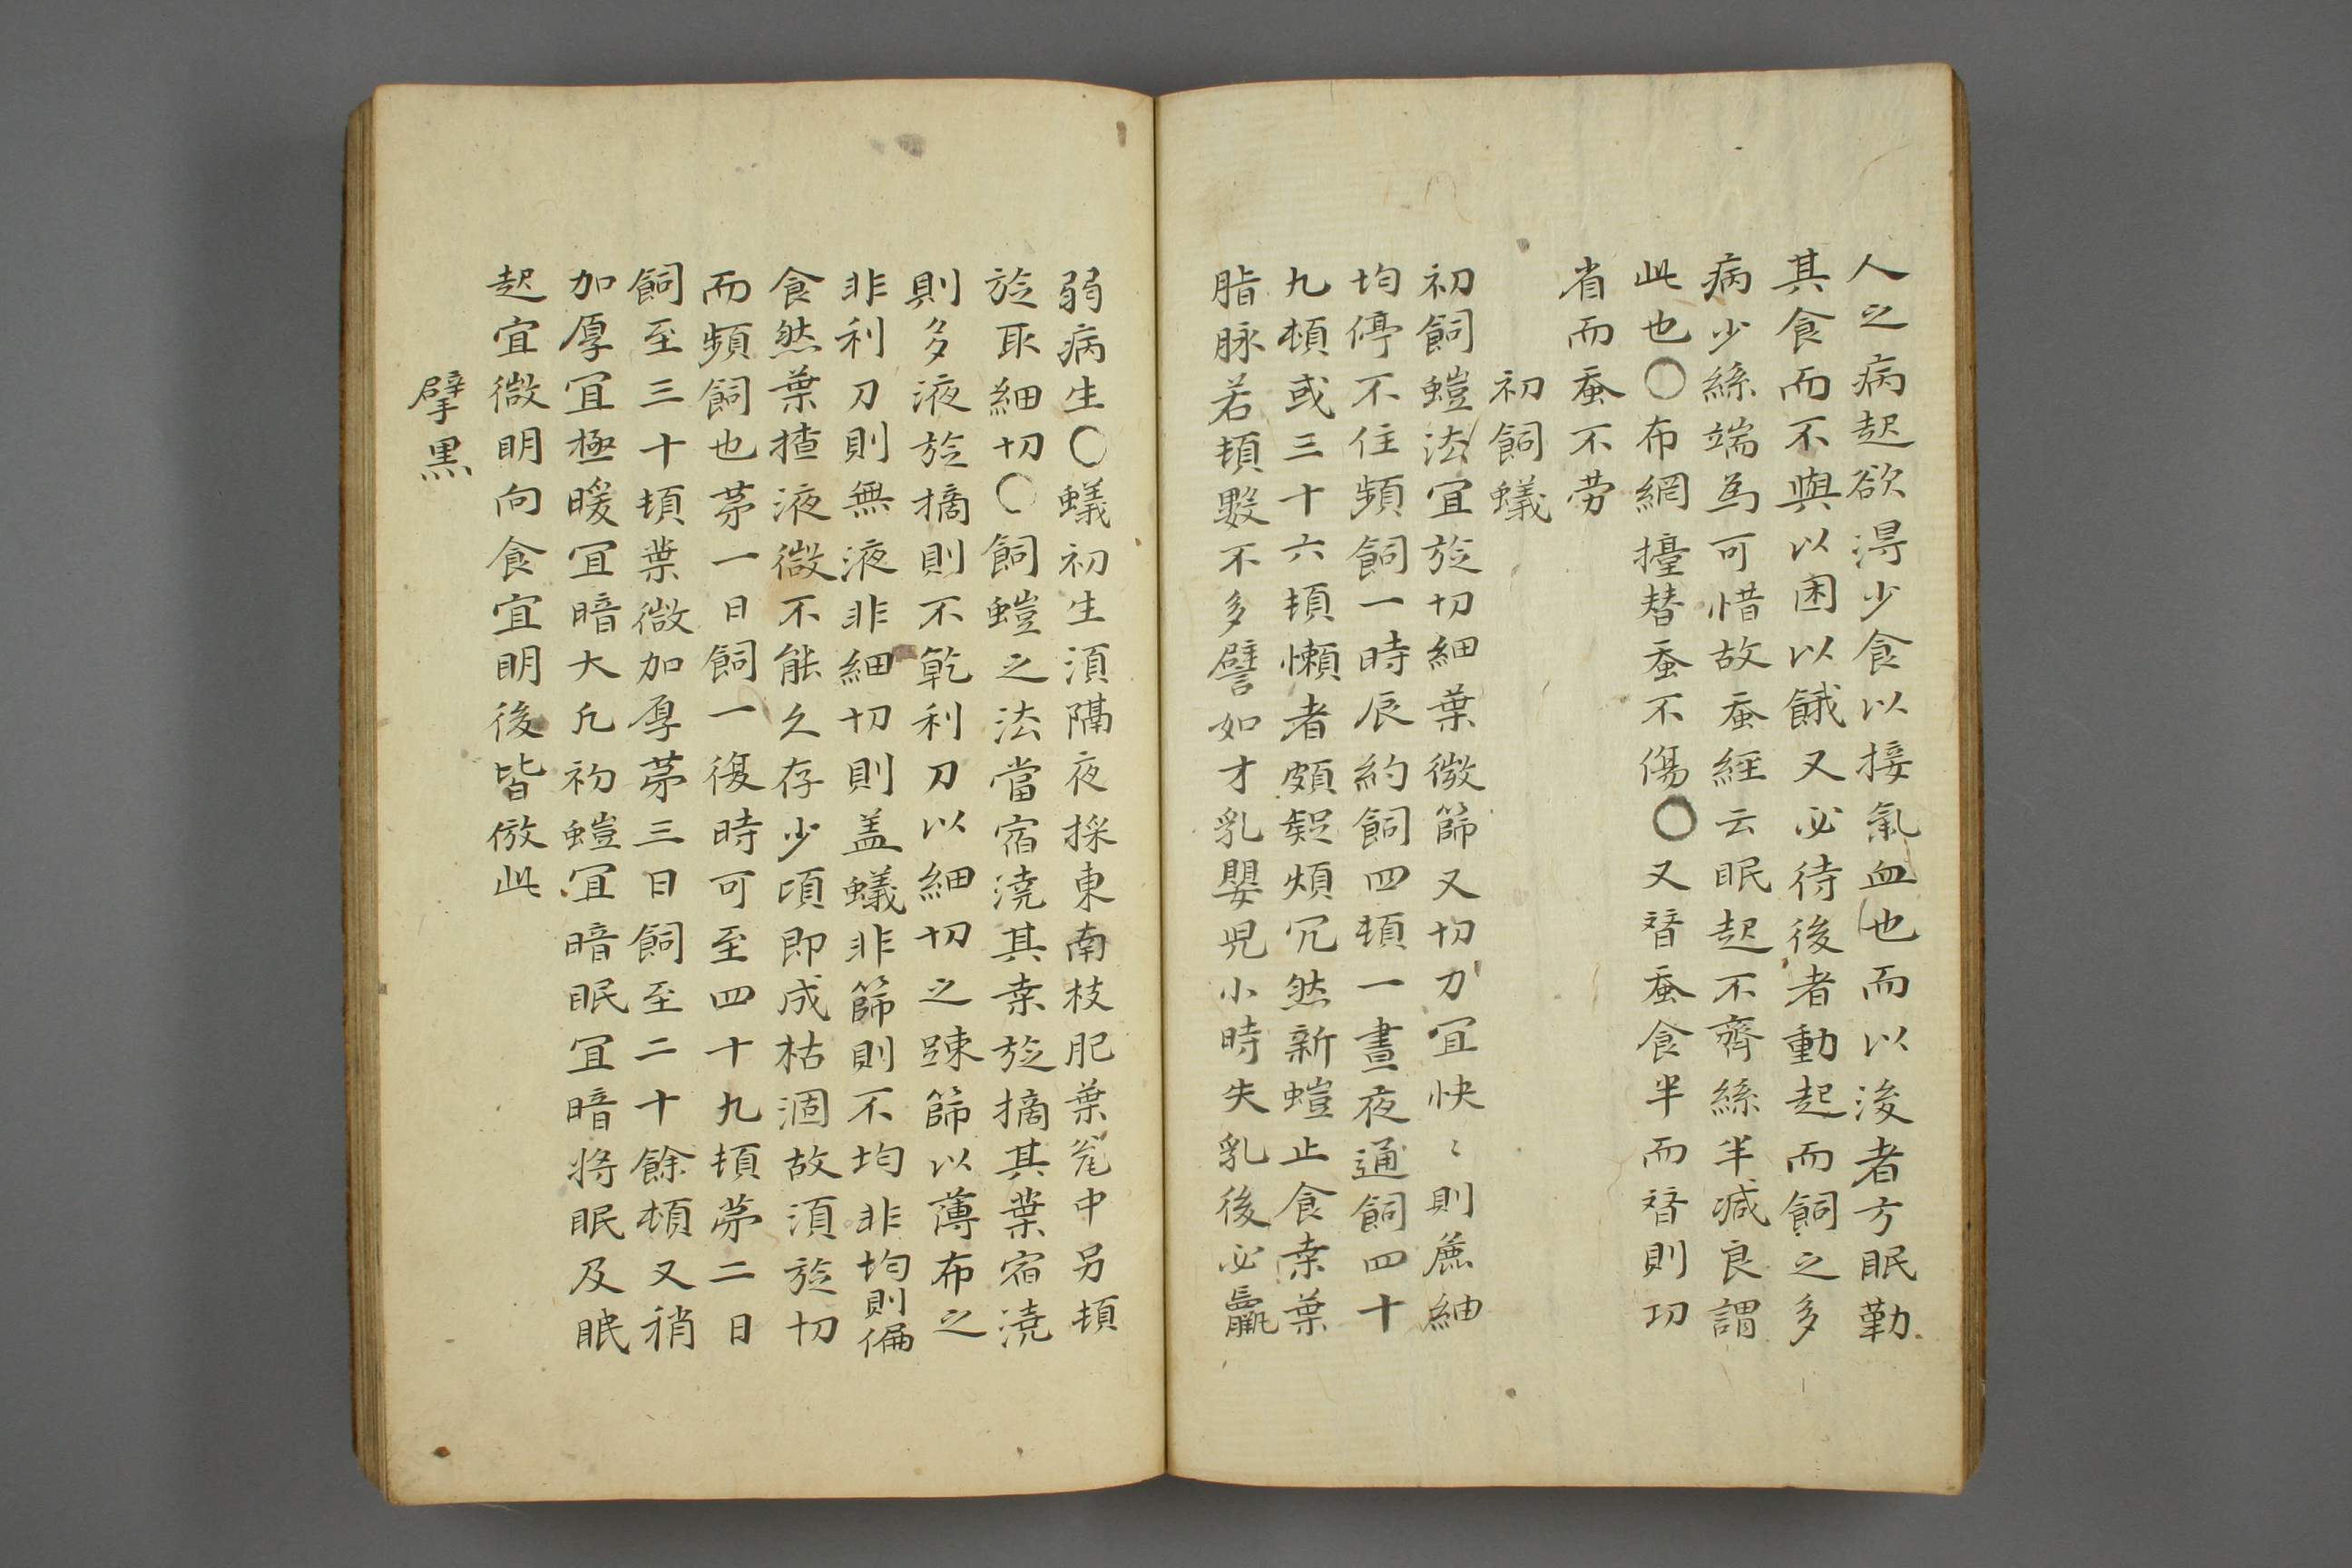 人之病起欲淂少食以接氣血也而以後者方眠勤
其食而不與以困以餓又必待後者動起而飼之多
病少絲端為可惜故蚕經云眠起不齊絲半减良謂
此也〇布網擡替蚕不傷〇又替蚕食半而替則功
省而蚕不劳
初飼蟻
初飼螘法宜旋切細葉微篩又切刀宜快〻則麁細
均停不住頻飼一時辰約飼四頓一晝夜通飼四十
九頓或三十六頓懶者頗疑煩冗然新螘止食桒葉
脂脉若頓數不多譬如才乳嬰兒小時失乳後必羸
弱病生〇蟻初生湏隔夜採東南枝肥葉瓮中另頓
旋取細切〇飼螘之法當宿澆其桒旋摘其葉宿澆
則多液旋摘則不乾利刀以細切之踈篩以薄布之
非利刀則無液非細切則盖蟻非篩則不均非均則偏
食然葉揸液微不能久存少頃即成枯涸故湏旋切
而頻飼也苐一日飼一復時可至四十九頓苐二日
飼至三十頓葉微加厚苐三日飼至二十餘頓又稍
加厚宜極暖宜暗大凢初螘宜暗眠宜暗将眠及眠
起宜微明向食宜明後皆倣此
擘黒